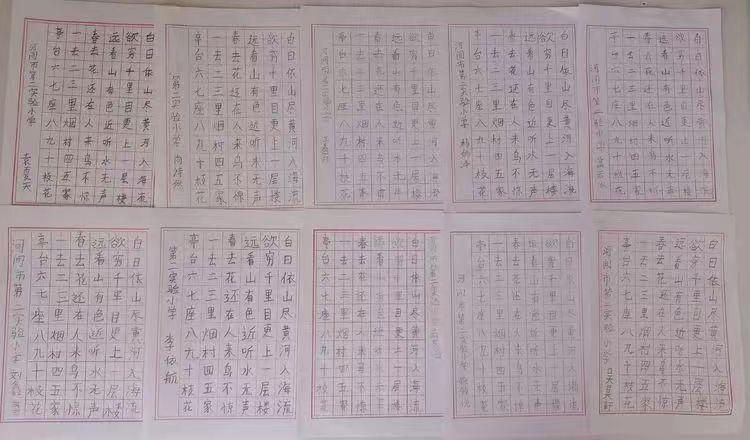 白日依山尽黄河入海流
欲穷千里目更上一层楼
远看山有色近听水无声
春去花还在人来鸟不惊
一去二三里烟村四五家
亭台六七座八九十枝花
河间市第二实验小学 袁夏天
白日依山尽黄河入海流
欲穷千里目更上一层楼
远看山有色近听水无声
春去花还在人来鸟不惊
一去二三里烟村四五家
亭台六七座八九十枝花
第二实验小学
白日依山尽黄河入海流
欲穷千里目更上一层楼
远看山有色近听水无声
春去花还在人来鸟不惊
一去二三里烟村四五家
亭台六七座八九十枝花
河间市第二
白日依山尽黄河入海流
欲穷千里目更上一层楼
远看山有色近听水无声
春去花还在人来鸟不惊
一去二三里烟村四五家
亭台六七座八九十枝花
河间市第二实验小学
白日依山尽黄河入海流
欲穷千里目更上一层楼
远看山有色近听水无声
春去花还在人来鸟不惊
一去二三里烟村四五家
亭台六七座八九十枝花
河间市第二实验小学
白日依山尽黄河入海流
欲穷千里目更上一层楼
远看山有色近听水无声
春去花还在人来鸟不惊
一去二三里烟村四五家
亭台六七座八九十枝花
河间市第二实验小学 刘
白日依山尽黄河入海流
欲穷千里目更上一层楼
远看山有色近听水无声
春去花还在人来鸟不惊
一去二三里烟村四五家
亭台六七座八九十枝花
第二实验小学 李依航
白日依山尽黄河入海流
欲穷千里目更上一层楼
远看山有色近听水无声
春去花还在人来鸟不惊
一去二三里烟村四五家
亭台六七座八九十枝花
白日依山尽黄河入海流
欲穷千里目更上一层楼
远看山有色近听水无声
春去花还在人来鸟不惊
一去二三里烟村四五家
亭台六七座八九十枝花
河间市第二实验小学
白日依山尽黄河入海流
欲穷千里目更上一层楼
远看山有色近听水无声
春去花还在人来鸟不惊
一去二三里烟村四五家
亭台六七座八九十枝花
河间市第二实验小学